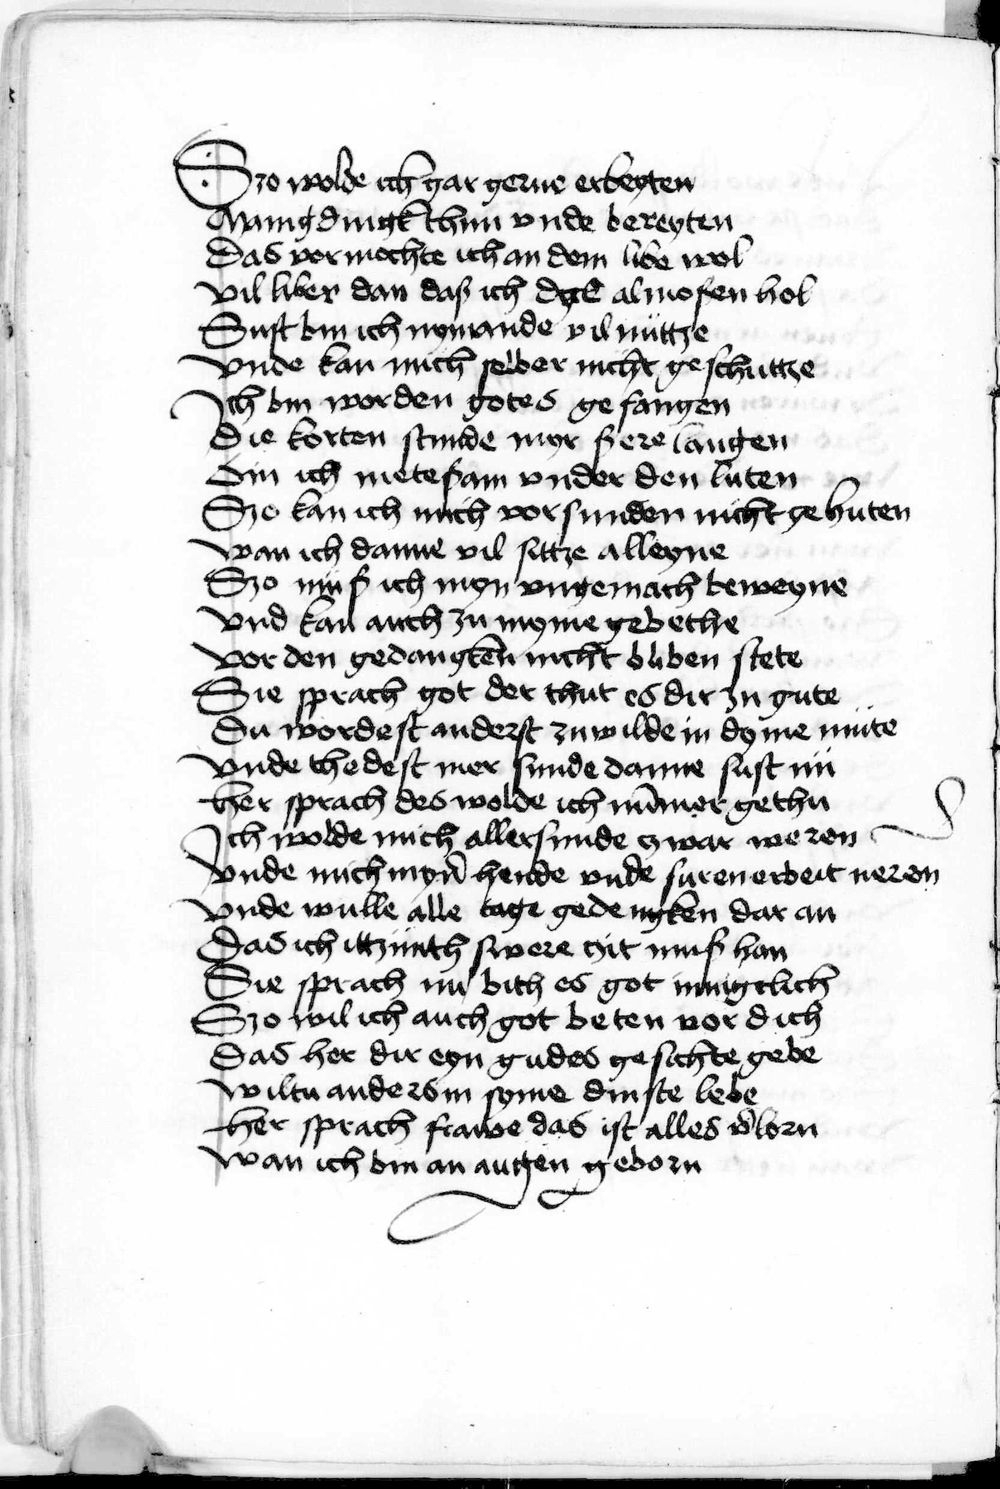 Szo wolde ich gar gerne erbeyten
Manig dingk thun vnde bereyten
Das vormochte ich an dem libe wol
Vil liber dan daß ich almosen hol
Sust bin ich nymande vil nüttze
Vnde kan mich selber nicht geschuttze
Ich bin worden gotes gefangen
Die korten stunde myr ßere langen
Bin ich metesam vnder den luten
Szo kan ich mich vor sunden nicht gehuten
Wan ich danne vil sittze alleyne
Szo müß ich myn vngemach beweyne
Vnd kan auch zu myme gebethe
Vor den gedangken nicht bliben stete
Sie sprach got der thut es dir zu gute
Du wordest anderst zu wilde in dyme müte
Vnde thedest mer sunde danne sust nü
Her sprach des wolde ich nümer gethu
Ich wolde mich aller sunde zwar weren
Vnde mich myn hende vnde suren erbeit neren
Vnde wulle alle tage gedengken dar an
Das ich ittzünth swere zit muß han
Sie sprach nü bith es got innigclich
Szo wil ich auch got beten vor dich
Das her dir eyn gudes gesichte gebe
Wiltu anders in syme dinste lebe
Her sprach frawe das ist alles v̉lorn
Wan ich bin an augen geborn